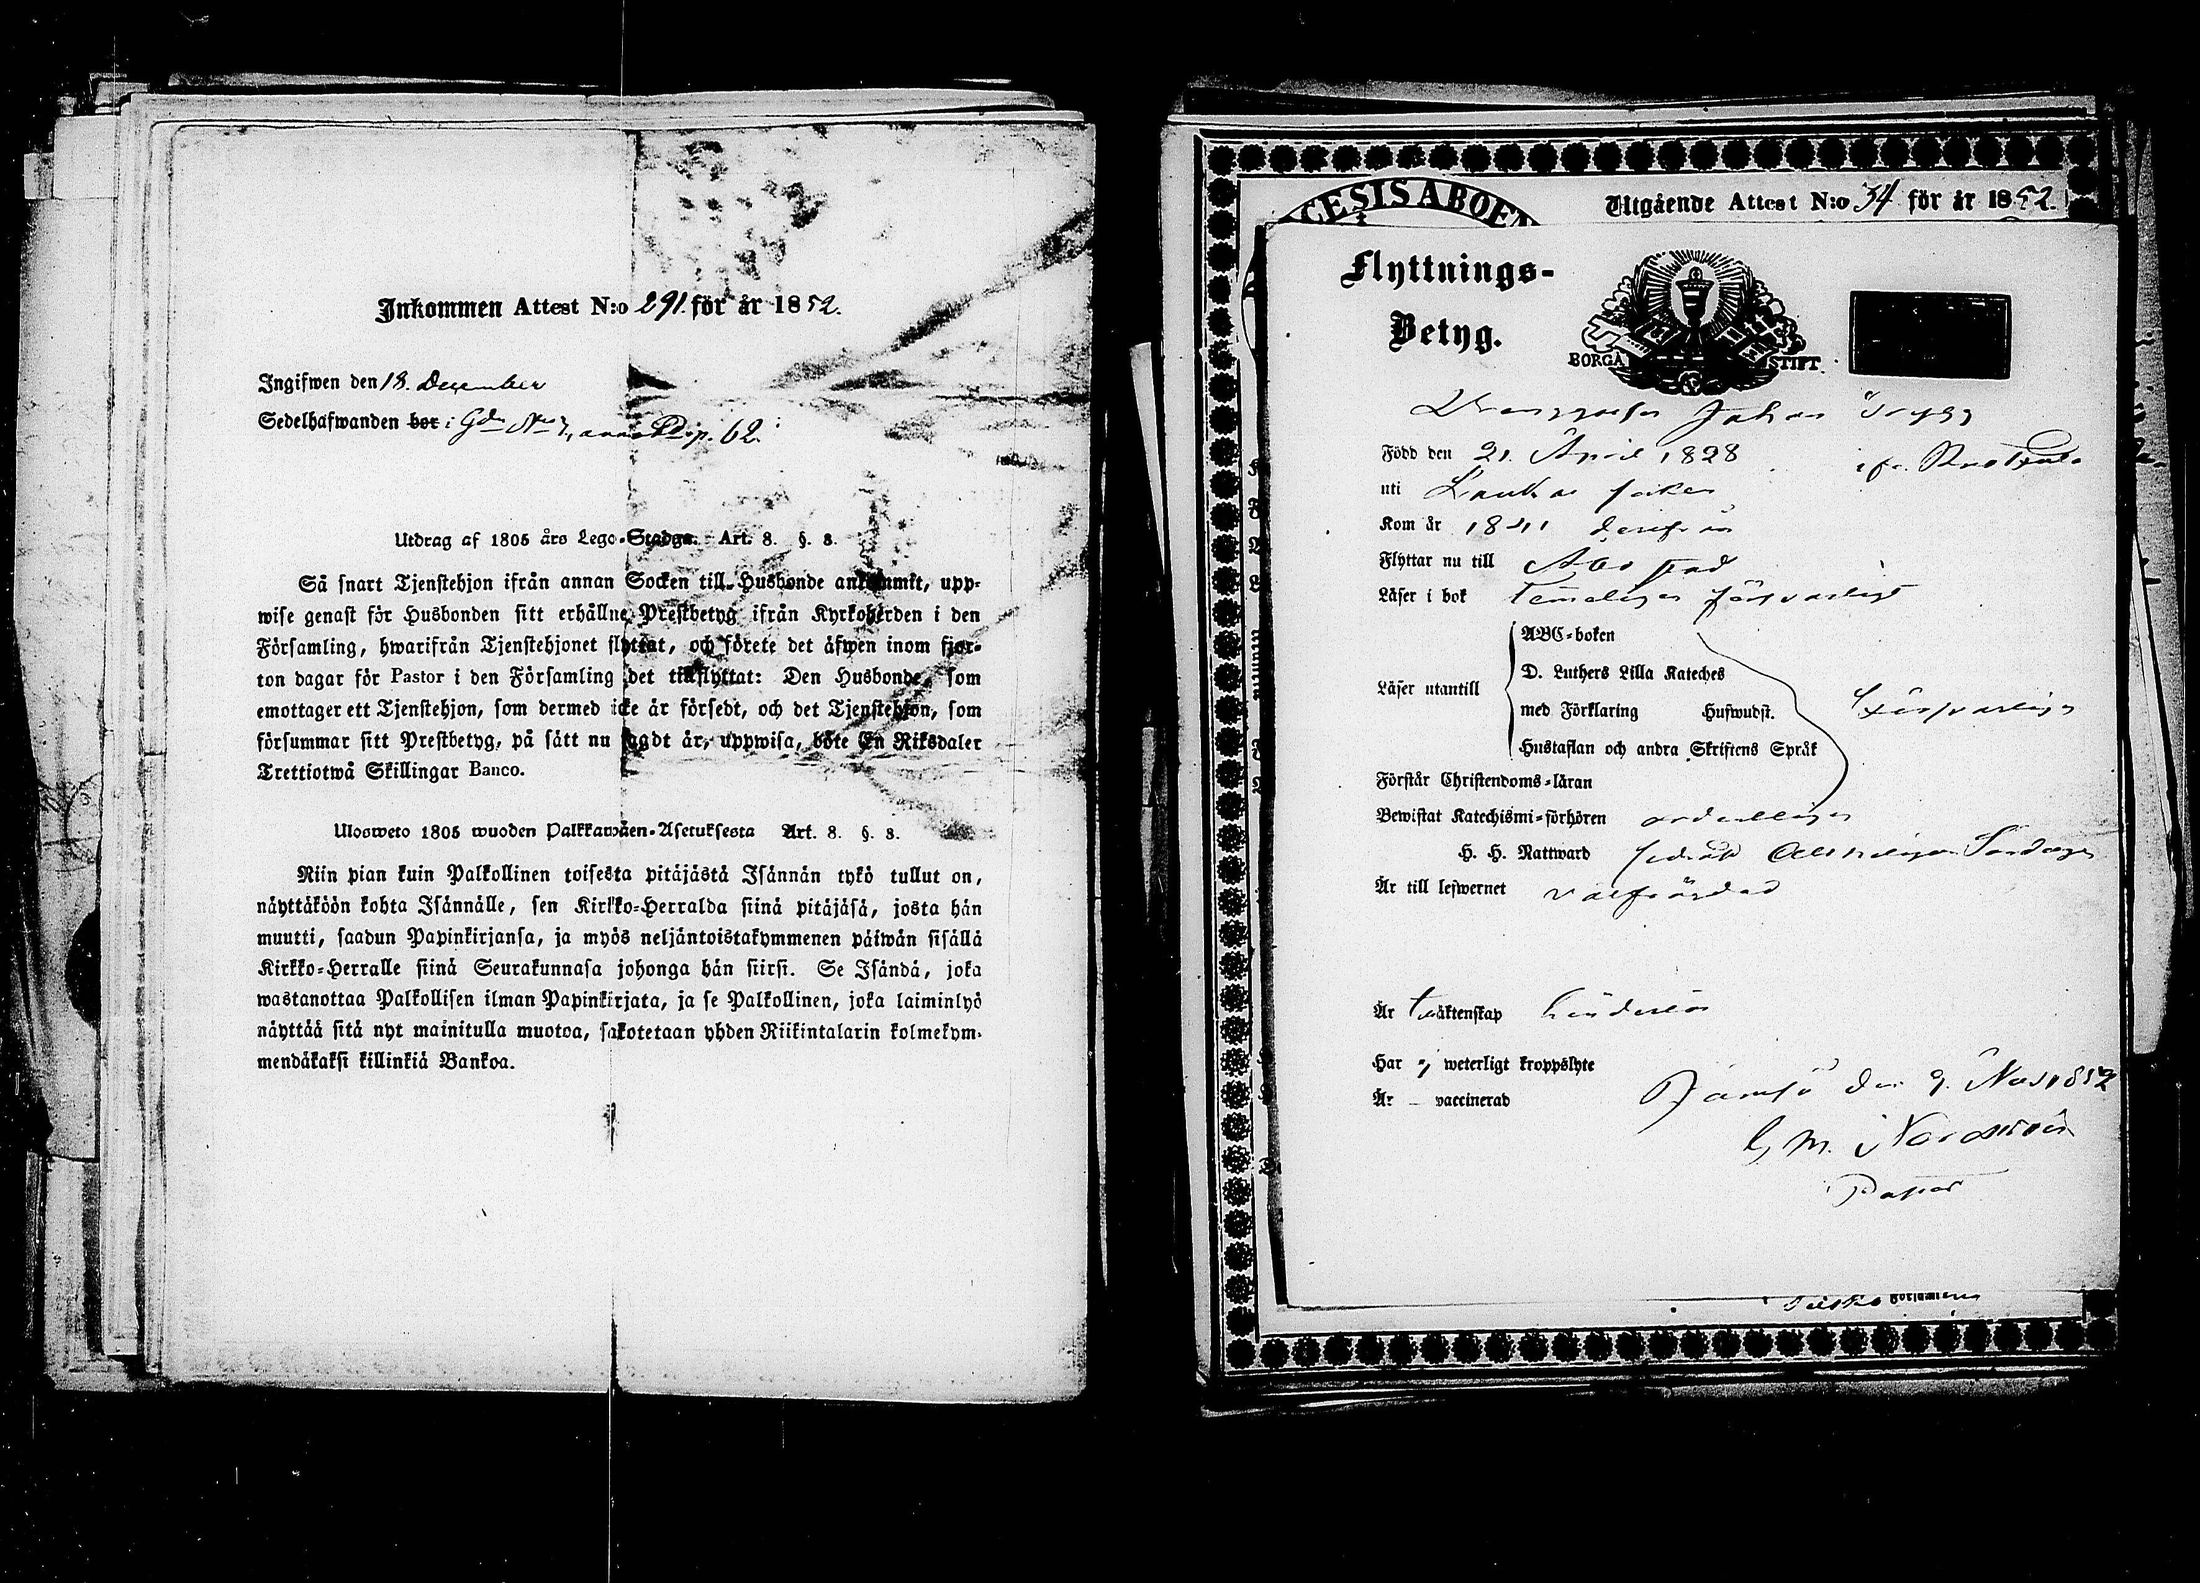 Inkommen Attest N:o 291. för år 1852.
Ingifwen den 18. December
Sedelhafwanden bor i Gdn No 7, p. 62.
Utdrag af 1805 års Lego-Stadga. Art. 8. §. 8.
Så snart Tjenstehjon ifrån annan Socken till Husbonde ankommit, upp-
wise genast för Husbonden sitt erhållne Prestbetyg ifrån Kyrkoherden i den
Församling, hwarifrån Tjenstehjonet flyttat, och förete det äfwen inom fjor-
ton dagar för Pastor i den Församling det tillflyttat: Den Husbonde, som
emottager ett Tjenstehjon, som dermed icke är försedt, och det Tjenstehjon, som
försummar sitt Prestbetyg, på sätt nu sagdt är, uppwisa, böte En Riksdaler
Trettiotwå Skillingar Banco.
Ulosweto 1805 wuoden Palkkawäen-Asetuksesta Art. 8. §. 8.
Niin pian kuin Palkollinen toisesta pitäjästä Isännän tykö tullut on,
näyttäköön kohta Isännälle, sen Kirkko-Herralda siinä pitäjäsä, josta hän
muutti, saadun Papinkirjansa, ja myös neljäntoistakymmenen päiwän sisällä
Kirkko-Herralle siinä Seurakunnasa johonga hän siirsi. Se Isändä, joka
wastanottaa Palkollisen ilman Papinkirjata, ja se Palkollinen, joka laiminlyö
näyttää sitä nyt mainitulla muotoa, sakotetaan yhden Riikintalarin kolmekym-
mendäkaksi killinkiä Bankoa.
CESIS ABOEN
Utgående Attest N:o 34 för år 1852.
Flyttnings-
Betyg.
BORGÅ STIFT.
Johan
Född den 21. April 1828
uti Laukas socken
Kom år 1841 derifrån
Flyttar nu till Åbo stad
Läser i bok temeligen försvarligt
ABC-boken
D. Luthers Lilla Kateches
Läser utantill
med Förklaring Huswudst.
försvarligen
Hustaflan och andra Skriftens Språk
Förstår Christendoms-läran
Bewistat Katechismi-förhören ordentligen
H. H. Nattward sednast Alla helgon Söndagen
Är till lefwernet välfrejdad
Är t. äktenskap hinderlös
Har ej weterligt kroppslyte
Är vaccinerad
Jämsä den 9. Nov. 1852
Pastor